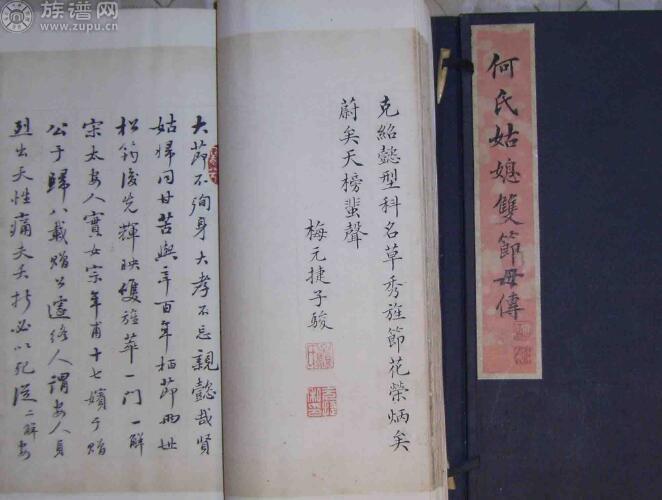 族谱网
www.zupu.cn
何氏姑媳雙節母傳
克紹懿型科名草秀旌節花榮炳矣
蔚矣天榜蜚聲
梅元捷子駿
大節不殉身大孝不忘親懿哉賢
姑婦同甘苦與辛百年栢節兩世
松筠後先輝映雙旌萃一門一解
宋太安人實女宗年甫十七嬪于贈
公于歸八載贈公遽終人謂安人貞
烈出天性痛夫夭折必以死從二解安